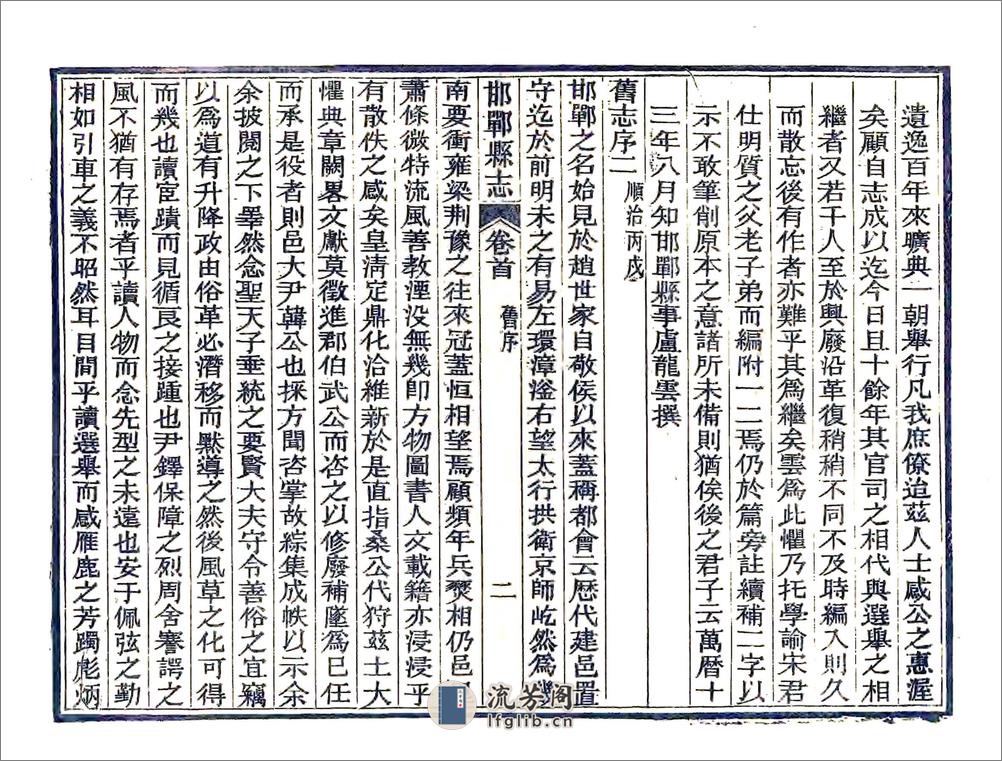 遺逸百年來曠典一朝舉行凡我庶僚迨茲人士咸公之惠渥
矣顧自志成以迄今日且十餘年其官司之相代與選舉之相
繼者又若干人至於興廢沿革復稍稍不同不及時編入則久
而散忘後有作者亦難乎其為繼矣雲為此懼乃托學諭宋君
仕明質之父老子弟而編附一二焉仍於篇旁註續補二字以
示不敢筆削原本之意諸所未備則猶俟後之君子云萬曆十
三年八月知邯鄲縣事盧龍雲撰
舊志序二 順治丙戌
邯鄲之名始見於趙世家自敬侯以來蓋稱都會云歷代建邑置
守迄於前明未之有易左環漳滏右望太行拱衛京師屹然為畿
邯鄲縣志 卷首 舊序 二
南要衝雍梁荆豫之往來冠蓋恒相望焉顧頻年兵燹相仍邑
蕭條微特流風善教湮没無幾即方物圖書人文載籍亦浸浸乎
有散佚之感矣皇清定鼎化洽維新於是直指桑公代狩茲土大
懼典章闕畧文獻莫徵進郡伯武公而咨之以修廢補墜為已任
而承是役者則邑大尹韓公也採方聞咨掌故綜集成帙以示余
余披閱之下睪然念聖天子垂統之要賢大夫守令善俗之宜竊
以為道有升降政由俗革必潛移而默導之然後風草之化可得
而幾也讀宦蹟而見循良之接踵也尹鐸保障之烈周舍謇諤之
風不猶有存焉者乎讀人物而念先型之未遠也安于佩弦之勤
相如引車之義不昭然耳目間乎讀選舉而感雁鹿之芳躅彪炳
流芳阁
lfglib.cn